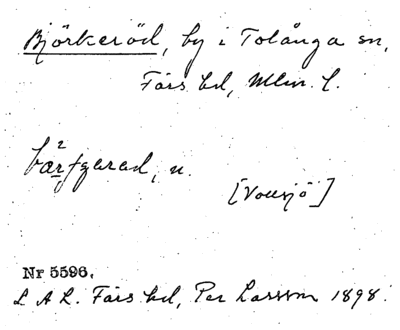 Björkeröd, by i Tolånga sn,
Färs hd, Mlm. l.
n.
[Vollsjö]
Nr 5596.
L A L. Färs hd, Per Larsson 1898.